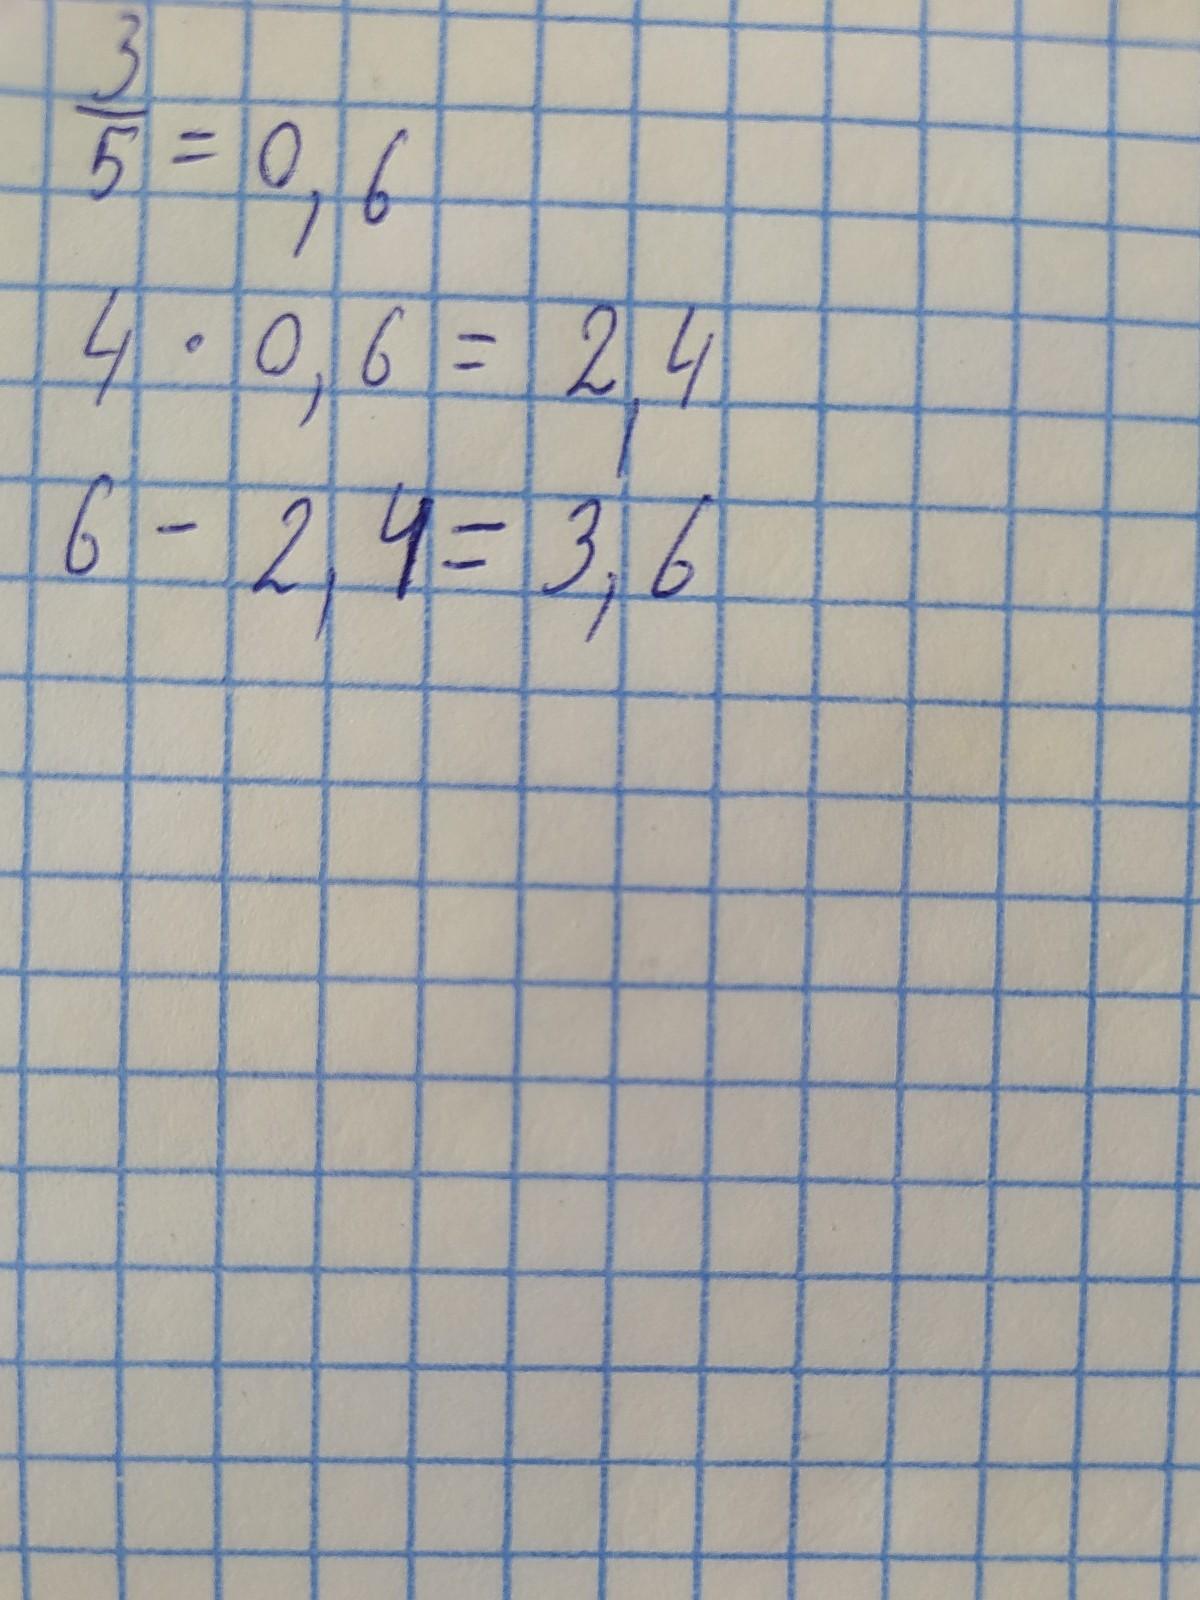 3/5 = 0,6
4 · 0,6 = 2,4
6 - 2,4 = 3,6